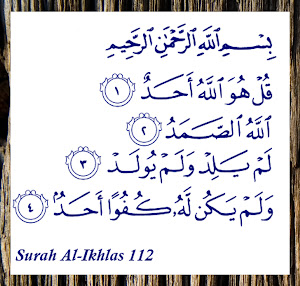 بِسْمِ اللَّهِ الرَّحْمَٰنِ الرَّحِيمِ
قُلْ هُوَ اللَّهُ أَحَدٌ ١
اللَّهُ الصَّمَدُ ٢
لَمْ يَلِدْ وَلَمْ يُولَدْ ٣
وَلَمْ يَكُن لَّهُۥ كُفُوًا أَحَدٌۢ ٤
Surah Al-Ikhlas 112